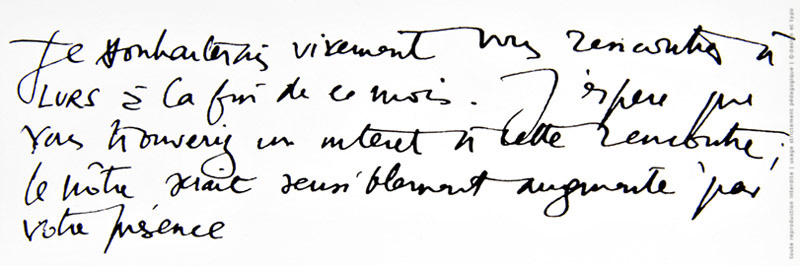 Je souhaiterais vivement vous rencontrer à
LURS à la fin de ce mois. J'espère que
vous trouverez un intéret à cette rencontre;
le nôtre serait sensiblement augmenté par
votre présence
toute reproduction interdite | usage strictement pédagogique | © design et typo